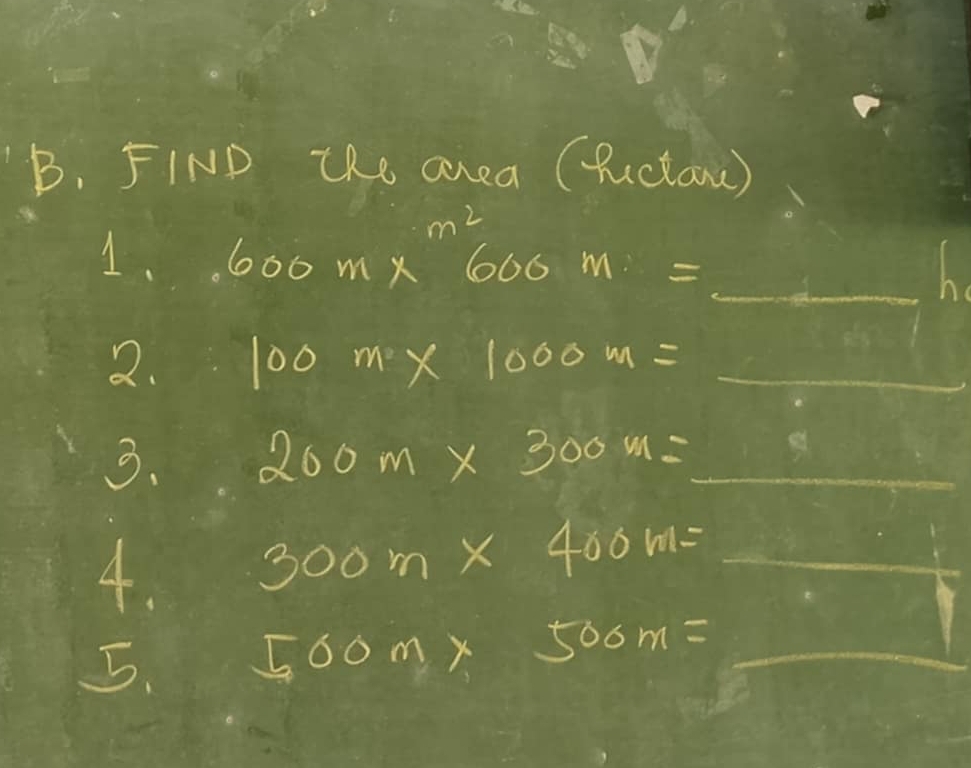 B. FIND the area (hectare)
m²
1. 600 m x 600 m = ______ ha
2. 100 m x 1000 m = ______
3. 200 m x 300 m = ______
4. 300 m x 400 m = ______
5. 500 m x 500 m = ______